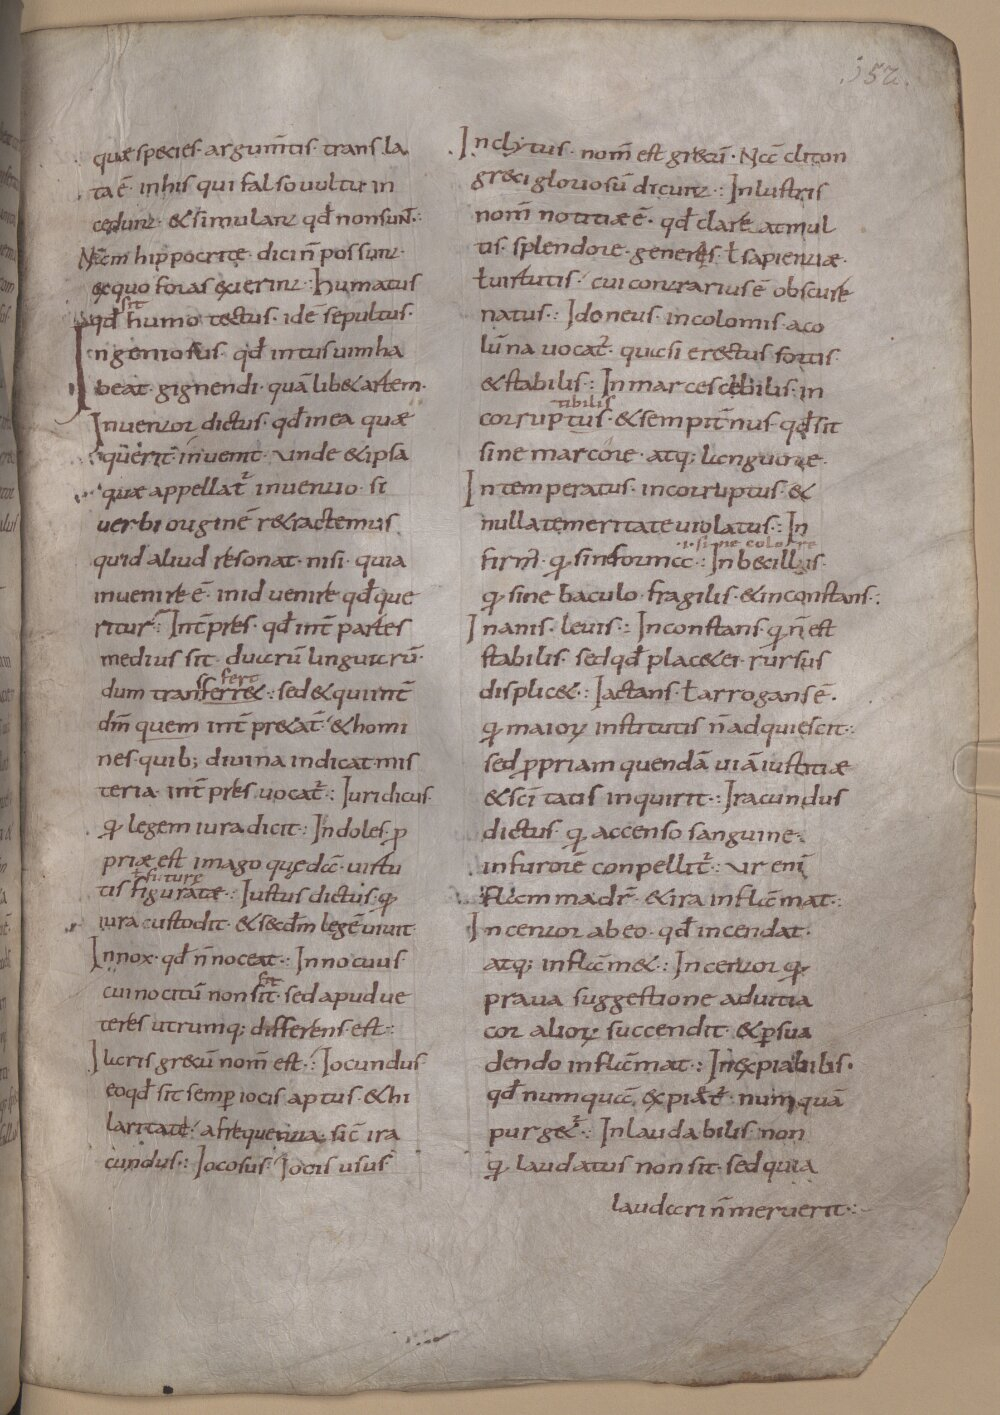 .152.
quæ species· argum̅tis· transla
ta ē· in his qui falso uultu in
cedunt· & simulant qđ non sunt·:
Nam hippocritę· dici n̄ possunt·
ex quo foras exierint·: humatus
sit
qđ humo tectus· idē sepultus·
Ingeniosus· qđ intus uim ha
beat· gignendi· quālib& artem·
Inuentor dictus· qđ in ea quæ
querit inuenit· unde & ipsa
quæ appellat̄ inuentio· si
uerbi originē r&ractemus
quid aliud resonat· nisi· quia
inuenire ē· in id uenire qđ que
ritur·: Int̄pres· qđ int̄ partes
medius sit· duarū linguarū·
fert
dum transferr&·: sed & qui int̄
dm̄ quem int̄pr&at̄· & homi
nes· quib; diuina indicat mis
teria int̄pres uocat̄·: Iuridicus
qꝛ legem iura dicit·: Indoles· ꝓ
priæ est imago quędā· uirtu
ł futurę
tis figuratæ·: Iustus dictus· qꝛ
iura custodit· & sec̄dm legē uiuit·
Innox· qđ n̄ noceat·: Innocuus
cui nocitū non sit· sed apud ue
teres utrumq; differens est·:
Ilaris grecū nom̄ est·: Iocundus
eo qđ sit semp̱ iocis aptus· & hi
laritate· a frequentia· sic̄ ira
cundus·: Iocosus Iocis usus
Inclytus· nom̄ est grecū· Nā cliton
greci gloriosū dicunt·: Inlustris
nom̄ notitiæ ē· qđ clare at mul
tis· splendore· generis· ł sapientiæ·
ł uirtutis· cui contrarius ē obscure
natus·: Idoneus· incolomis· a co
lūna uocat̄· quasi erectus· fortis·
& stabilis·: Inmarcescibilis· in
tibilis
corruptus· & sempit̄nus· qđ sit
sine marcore· atq; languore·
Intemperatus· incorruptus· &
nulla temeritate uiolatus·: In
·i· sine colore
firm̄· qꝛ sin forma·: Inbecillus·
qꝛ sine baculo· fragilis· & inconstans·:
Inanis· leuis·: Inconstans· qꝛ n̄ est
stabilis· sed qđ plac& ei· rursus
displic&·: Iactans· ł arrogans ē·
qꝛ maioꝝ institutis n̄ adquięscit·:
sed ꝓpriam quendā uiā iustitiæ
& sc̄itatis inquirit·: Iracundus
dictus· qꝛ accenso sanguine·
in furorē conpellit̄·: ur enī
flam̄ma dr̄· & ira inflam̄mat·:
Incentor ab eo· qđ incendat·
atq; inflam̄m&·: Incentor qꝛ
praua suggestione ad uitia
cor alioꝝ succendit· & p̱sua
dendo inflam̄mat·: Inexpiabilis·
qđ numquā expiet̄· numquā
purg&̄·: Inlaudabilis· non
qꝛ laudatus non sit· sed quia
laudari n̄ meruerit·: